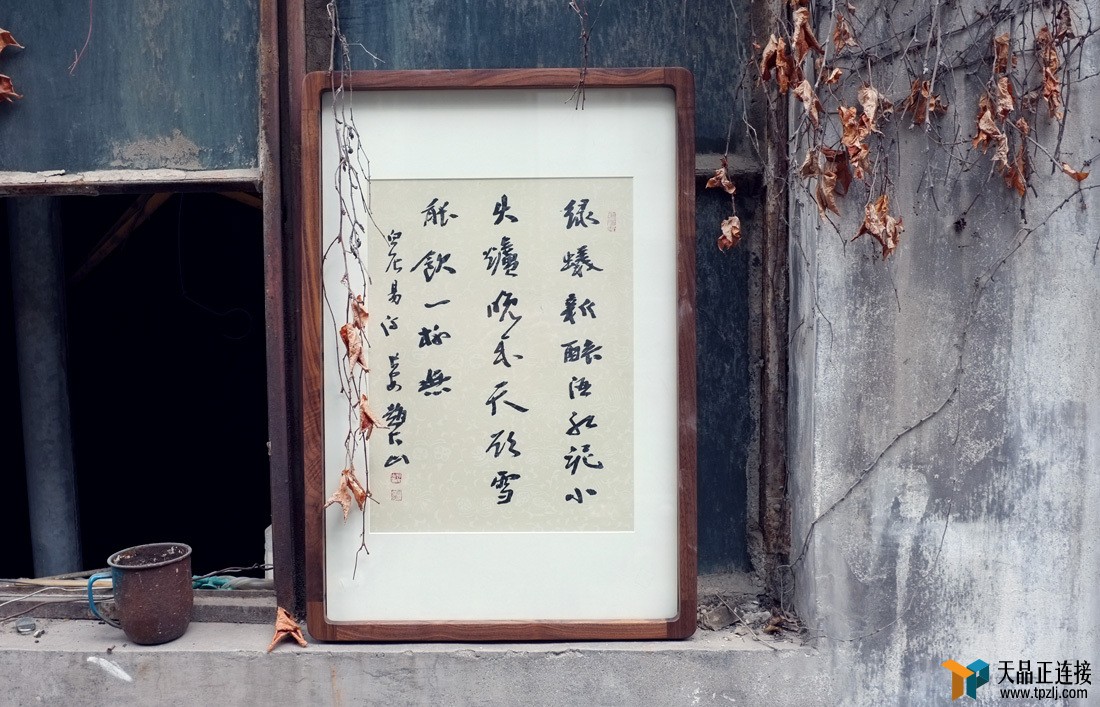 绿蟻新醅酒红泥小
火爐晚来天欲雪
能飲一杯無
白居易诗
天品正连接
www.tpzlj.com